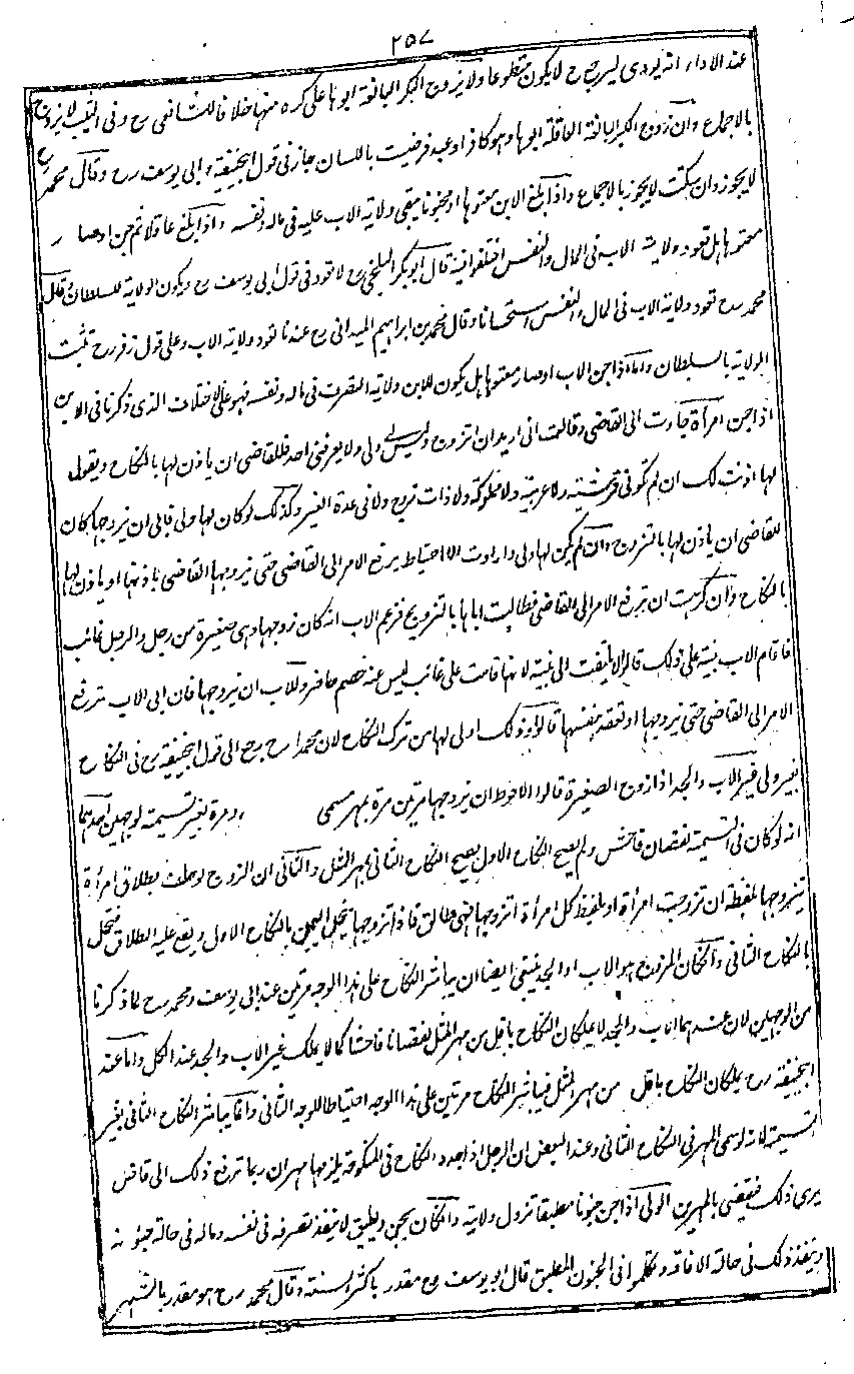 ٢٥٧
عند الاداء انه يودى ليرجع ح لا يكون متطوعا ولا يزوج البكر البالغة ابوها على كره منها خلافا للشافعى رح وفى الثيب لا يزوج
بالاجماع وان زوج البكر البالغة العاقلة ابوها وهو كافر او عبد فرضيت باللسان جاز فى قول ابيحنيفة وابى يوسف رح وقال محمد رح
لا يجوز وان سكتت لا يجوز بالاجماع واذا بلغ الابن معتوها او مجنونا تبقى ولاية الاب عليه فى ماله ونفسه واذا بلغ عاقلا ثم جن او صار
معتوها هل تعود ولاية الاب فى المال والنفس اختلفوا فيه قال ابو بكر البلخى رح لا تعود فى قول ابى يوسف رح ويكون الولاية للسلطان وقال
محمد رح تعود ولاية الاب فى المال والنفس استحسانا وقال محمد بن ابراهيم الميدانى رح عندنا تعود ولاية الاب وعلى قول زفر رح تثبت
الولاية بالسلطان واما اذا جن الاب او صار معتوها هل يكون للابن ولاية التصرف فى ماله ونفسه فهو على الاختلاف الذى ذكرنا فى الابن
اذا جن امرأة جاءت الى القاضى وقالت انى اريد ان اتزوج وليس لى ولى ولا يعرفنى احد فللقاضى ان ياذن لها بالنكاح ويقول
لها اذنت لك ان لم تكونى قرشية ولا عربية ولا مملوكة ولا ذات زوج ولا فى عدة الغير وكذلك لو كان لها ولى فابى ان يزوجها كان
للقاضى ان ياذن لها بالتزوج وان لم يكن لها ولى وارادت الاحتياط يرفع الامر الى القاضى حتى يزوجها القاضى باذنها او ياذن لها
بالنكاح وان كرهت ان ترفع الامر الى القاضى فطالبت اباها بالتزويج فزعم الاب انه كان زوجها وهى صغيرة من رجل والرجل غائب
فاقام الاب بينة على ذلك قالوا لا يلتفت الى بينته لانها قامت على غائب ليس عنه خصم حاضر وللاب ان يزوجها فان ابى الاب ترفع
الامر الى القاضى حتى يزوجها او تعقد بنفسها قالوا وذلك اولى لها من ترك النكاح لان محمدا رح رجع الى قول ابيحنيفة رح فى النكاح
بغير ولى غير الاب والجد اذا زوج الصغيرة قالوا الاحوط ان يزوجها مرتين مرة بمهر مسمى ومرة بغير تسمية لوجهين احدهما
انه لو كان فى التسمية نقصان فاحش ولم يصح النكاح الاول يصح النكاح الثانى بمهر المثل والثانى ان الزوج لو حلف بطلاق امرأة
يتزوجها بلفظة ان تزوجت امرأة او بلفظ كل امرأة اتزوجها فهى طالق فاذا تزوجها ينحل اليمين بالنكاح الاول ويقع عليه الطلاق فتحل
بالنكاح الثانى وان كان المزوج هو الاب او الجد ينبغى ايضا ان يباشر النكاح على هذا الوجه مرتين عند ابى يوسف ومحمد رح لما ذكرنا
من الوجهين لان عندهما الاب والجد لا يملكان النكاح باقل من مهر المثل نقصانا فاحشا كما لا يملك غير الاب والجد عند الكل واما عند
ابيحنيفة رح يملكان النكاح باقل من مهر المثل فيباشر النكاح مرتين على هذا الوجه احتياطا للوجه الثانى وانما يباشر النكاح الثانى بغير
تسمية لانه لو سمى المهر فى النكاح الثانى وعند البعض ان الرجل اذا جدد النكاح فى المنكوحة يلزمها مهران ربما ترفع ذلك الى قاض
يرى ذلك فيقضى بالمهرين الولى اذا جن جنونا مطبقا تزول ولايته وان كان يجن ويفيق لا ينفذ تصرفه فى نفسه وماله فى حالة جنونه
وينفذ ذلك فى حالة الافاقة وتكلموا فى الجنون المطبق قال ابو يوسف رح مقدر باكثر السنة وقال محمد رح هو مقدر بالشهر